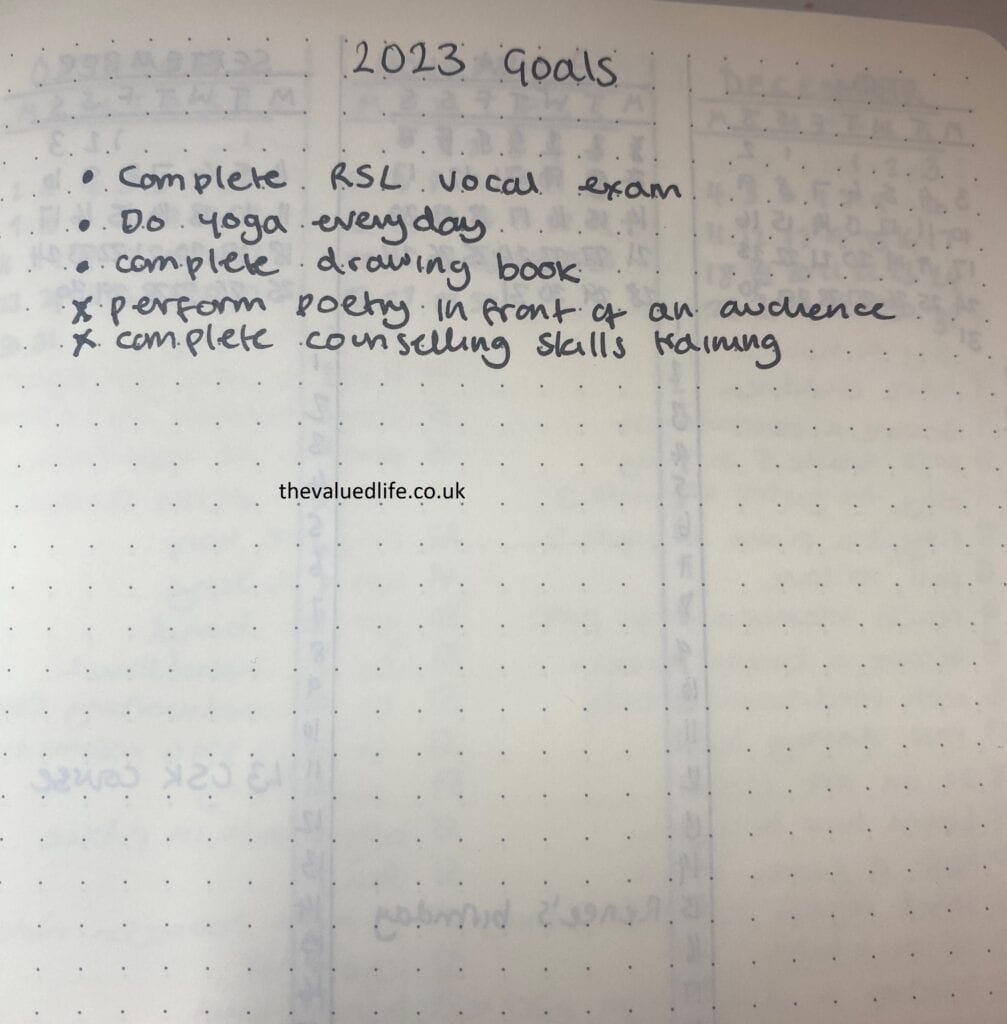 2023 Goals
• Complete RSL vocal exam
• Do yoga everyday
• complete drawing book
x perform poetry in front of an audience
x complete counselling skills training
thevaluedlife.co.uk
L3 CSK course
Renee's birthday